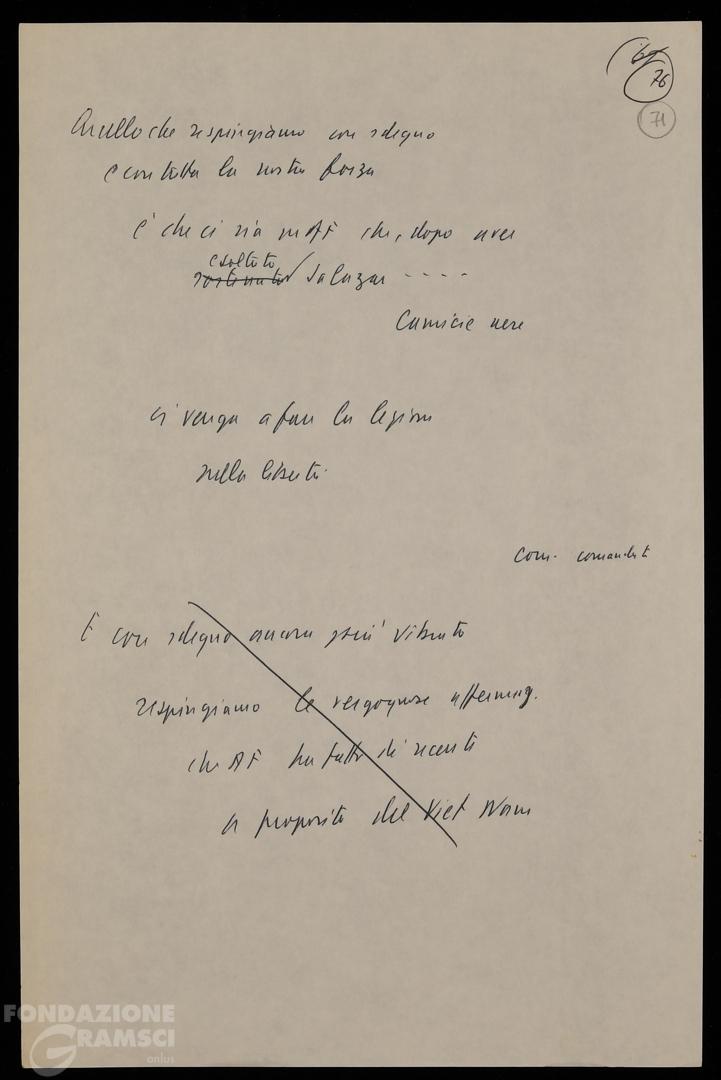 76
71
Quello che respingiamo con sdegno
e con tutta la nostra forza
è che ci sia un AF che, dopo aver
esaltato
sostenuto Salazar ----
Camicie nere
ci venga a fare la lezione
sulla libertà.
Com. comandati
E con sdegno ancora più vibrato
respingiamo le vergognose affermaz.
che AF ha fatto di recente
a proposito del Viet Nam
FONDAZIONE
GRAMSCI
onlus